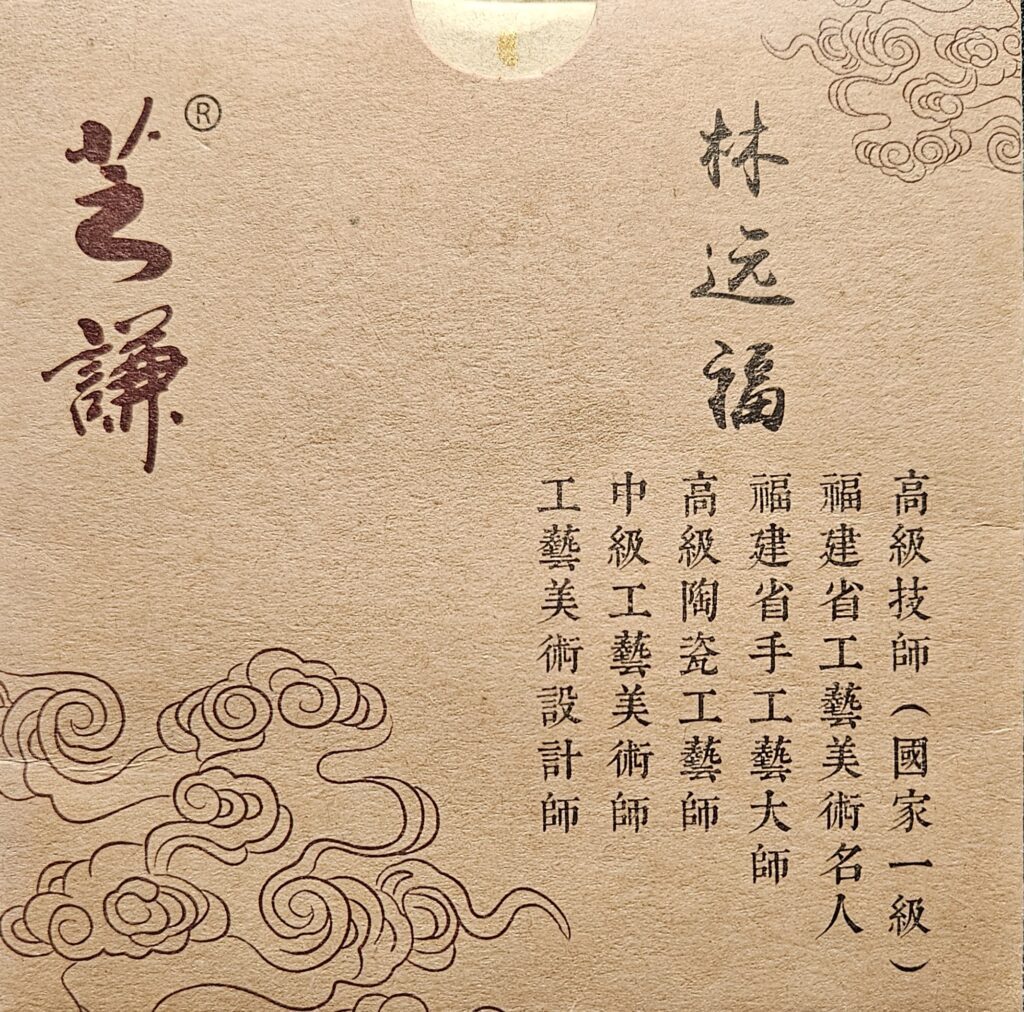 林远福
高級技師（國家一級）
福建省工藝美術名人
福建省手工藝大師
高級陶瓷工藝師
中級工藝美術師
工藝美術設計師
芝謙®